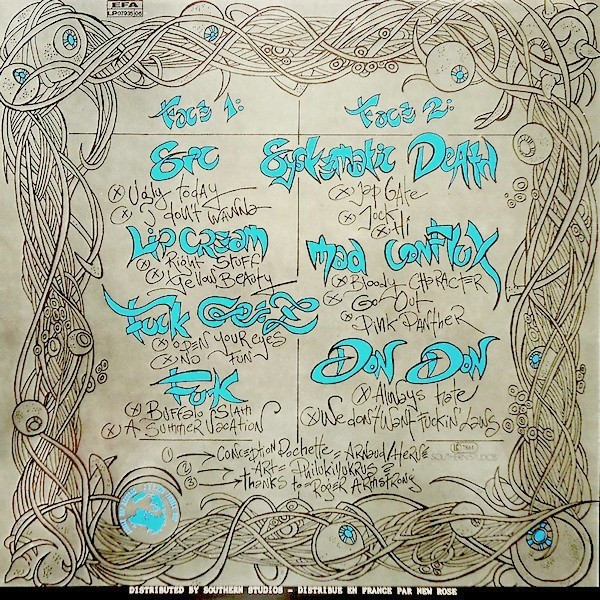 EFA
LP 07935/08
Face 1:
SPC
Ugly today
I don't wanna
Lip Cream
Right Stuff
Yellow Beauty
Fuck Geez
Open your eyes
No fun
Fuk
Buffalo Slam
A Summer Vacation
Face 2:
Systematic Death
Jap Gate
Jock
Hi
Mad Conflux
Bloody Character
Go Out
Pink Panther
Don Don
Always Hate
We don't want Fuckin' Laws
1 Conception Pochette = Arnaud/Hervé
2 Art =
3 thanks to = Roger Armstrong
DISTRIBUTED BY SOUTHERN STUDIOS - DISTRIBUE EN FRANCE PAR NEW ROSE